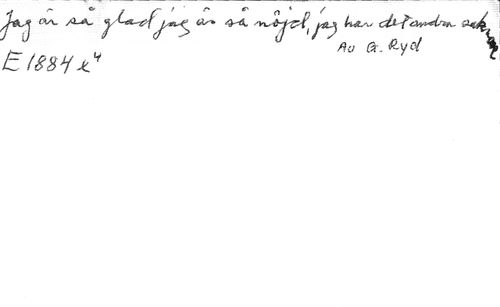 Jag är så glad jag är så nöjd, jag har det andra saknar
Av G. Ryd
E 1884 x⁴